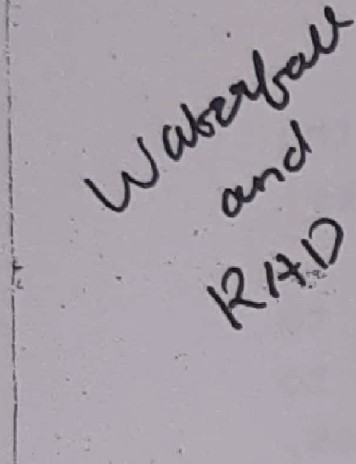 Waterfall
and
RAD